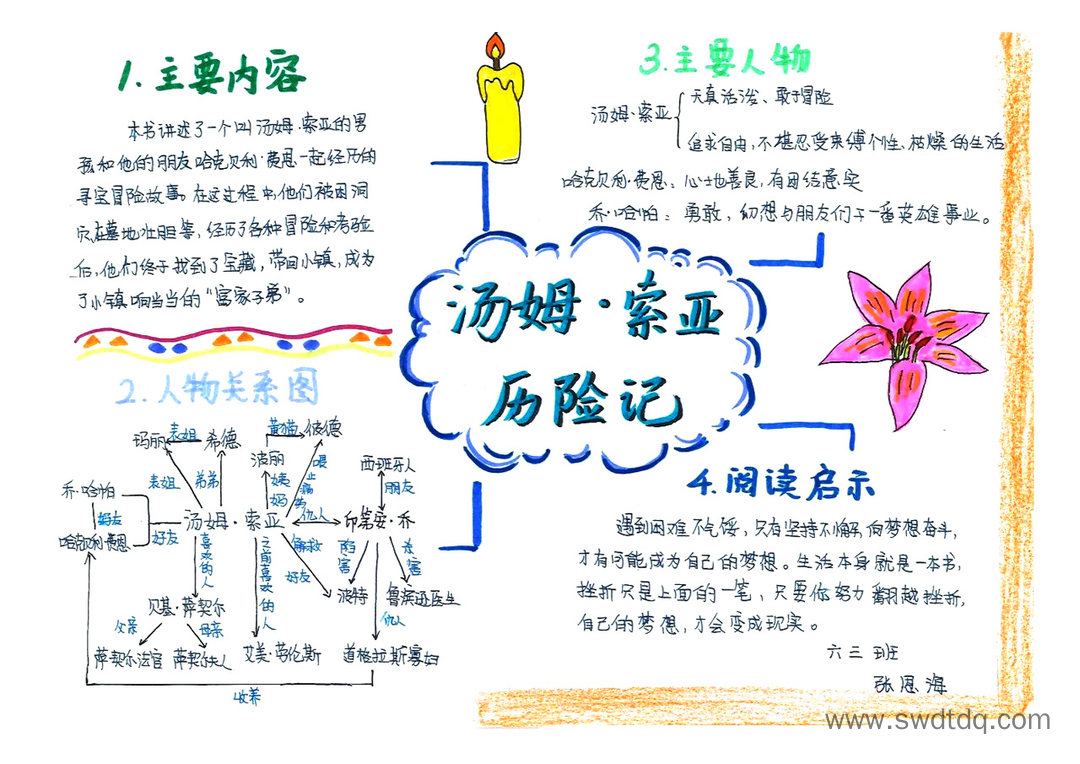 1.主要内容
本书讲述了一个叫汤姆·索亚的男
孩和他的朋友哈克贝利·费恩一起经历的
寻宝冒险故事。在这过程中,他们被困洞
穴,在墓地壮胆等,经历了各种冒险和考验
后,他们终于找到了宝藏,带回小镇,成为
了小镇响当当的“富家子弟”。
3.主要人物
汤姆·索亚
天真活泼、敢于冒险
追求自由,不堪忍受束缚个性、枯燥的生活
哈克贝利·费恩:心地善良,有团结意实
乔·哈帕:勇敢,幻想与朋友们干一番英雄事业。
汤姆·索亚
历险记
2.人物关系图
玛丽
表姐
希德
黄猫
彼德
波丽
西班牙人
表姐
弟弟
姨妈
喂
朋友
乔·哈帕
好友
哈克贝利·费恩
好友
汤姆·索亚
仇人
印第安·乔
喜欢的人
之前喜欢的人
解救
好友
陷害
杀害
波特
鲁滨逊医生
贝基·萨契尔
仇人
父亲
母亲
萨契尔法官
萨契尔夫人
艾美·劳伦斯
道格拉斯寡妇
收养
4.阅读启示
遇到困难不气馁,只有坚持不懈,向梦想奋斗,
才有可能成为自己的梦想。生活本身就是一本书,
挫折只是上面的一笔,只要你努力翻越挫折,
自己的梦想,才会变成现实。
六三班
张恩海
www.swdtdq.com